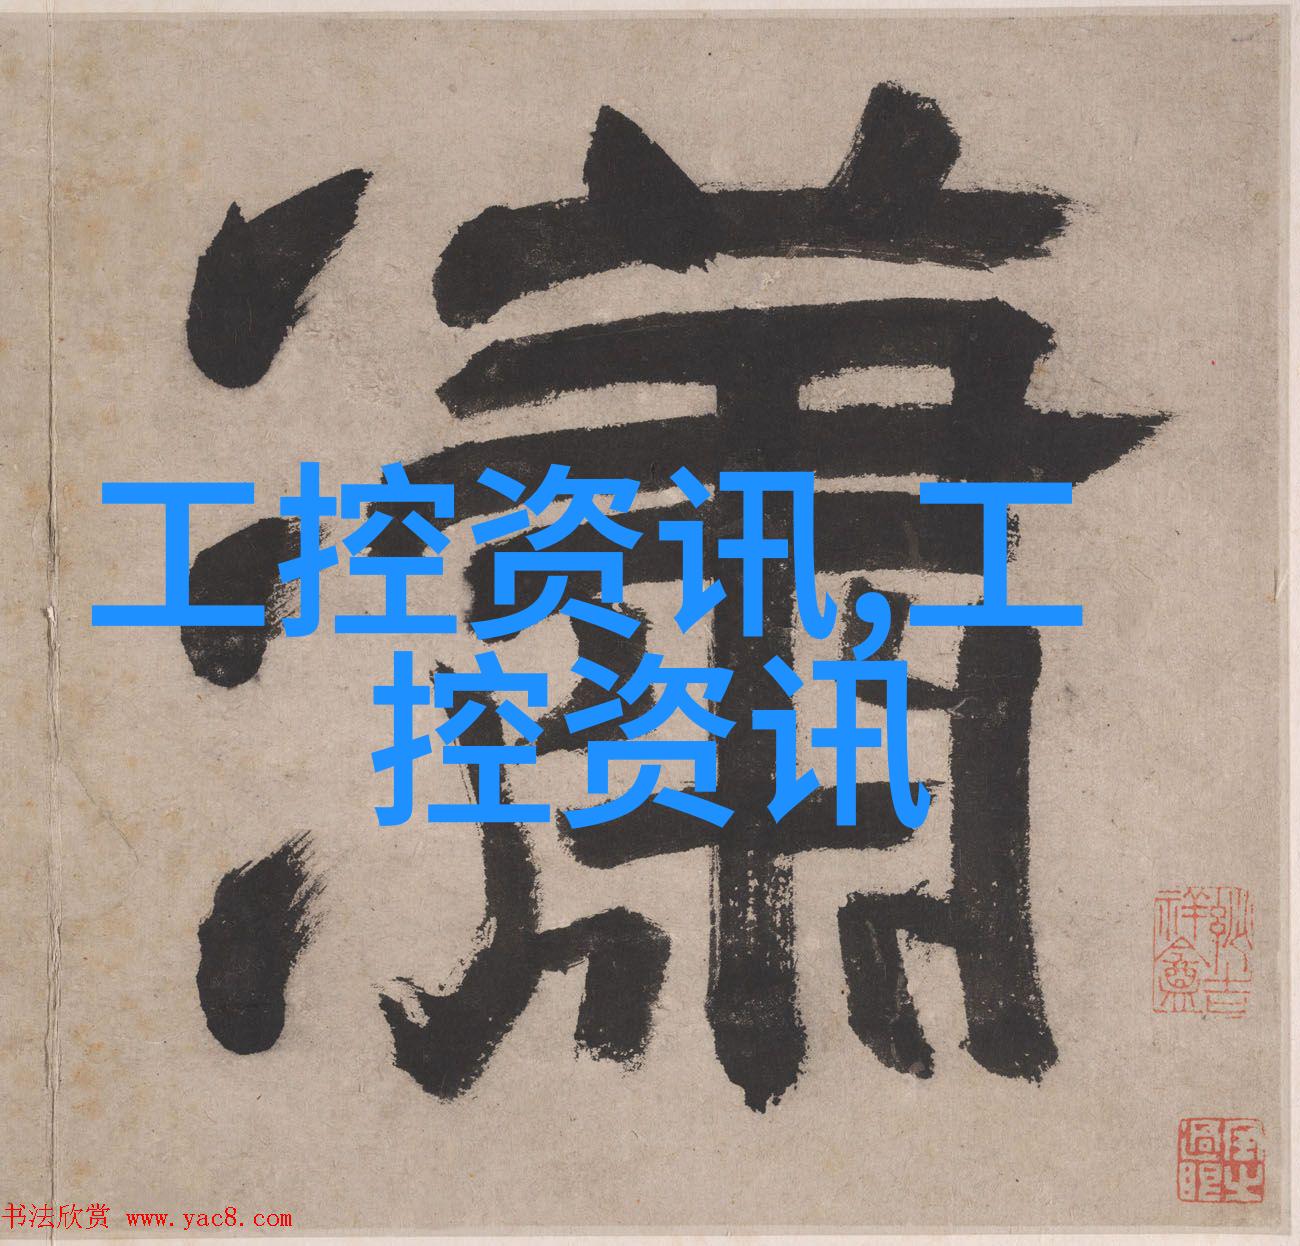 瀟
工控资讯,工
控资讯
书法欣赏 www.yac8.com